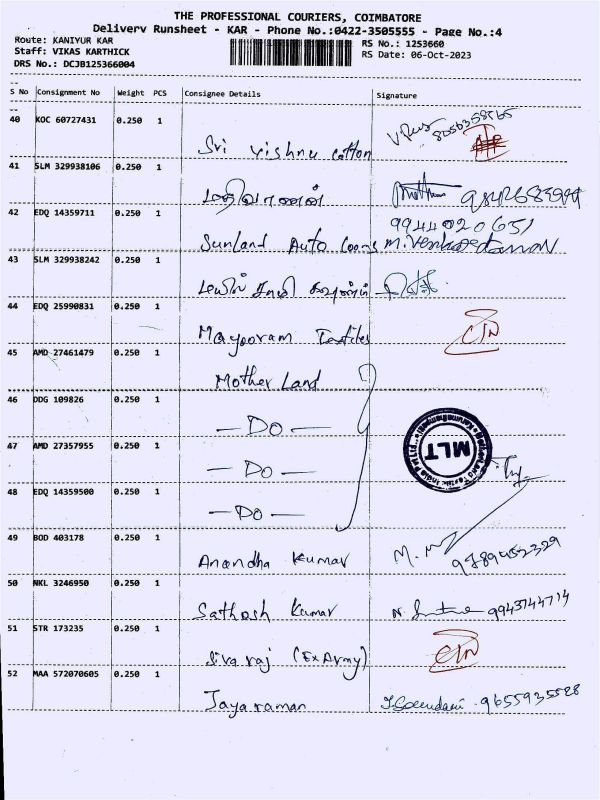 THE PROFESSIONAL COURIERS, COIMBATORE
Delivery Runsheet - KAR - Phone No.:0422-3505555 - Page No.:4
Route: KANIYUR KAR
Staff: VIKAS KARTHICK
DRS No.: DCJB125366004
RS No.: 1253660
RS Date: 06-Oct-2023
S No Consignment No Weight PCS Consignee Details Signature
40 KOC 60727431 0.250 1
Sri vishnu Cotton 8056358565
41 SLM 329938106 0.250 1
மதிவாணன்
42 EDQ 14359711 0.250 1
9944020651
Sunland Auto looms M. Venkatraman
43 SLM 329938242 0.250 1
44 EDQ 25990831 0.250 1
Mayooram Textiles
45 AMD 27461479 0.250 1
Mother Land
46 DDG 109826 0.250 1
— Do —
47 AMD 27357955 0.250 1
— Do —
MLT
48 EDQ 14359500 0.250 1
— Do —
49 BOD 403178 0.250 1
Anandha Kumar 9789452329
50 NKL 3246950 0.250 1
Sathosh Kumar 9943744714
51 STR 173235 0.250 1
Sivaraj (Ex Army)
52 MAA 572070605 0.250 1
Jayaraman 9655935528